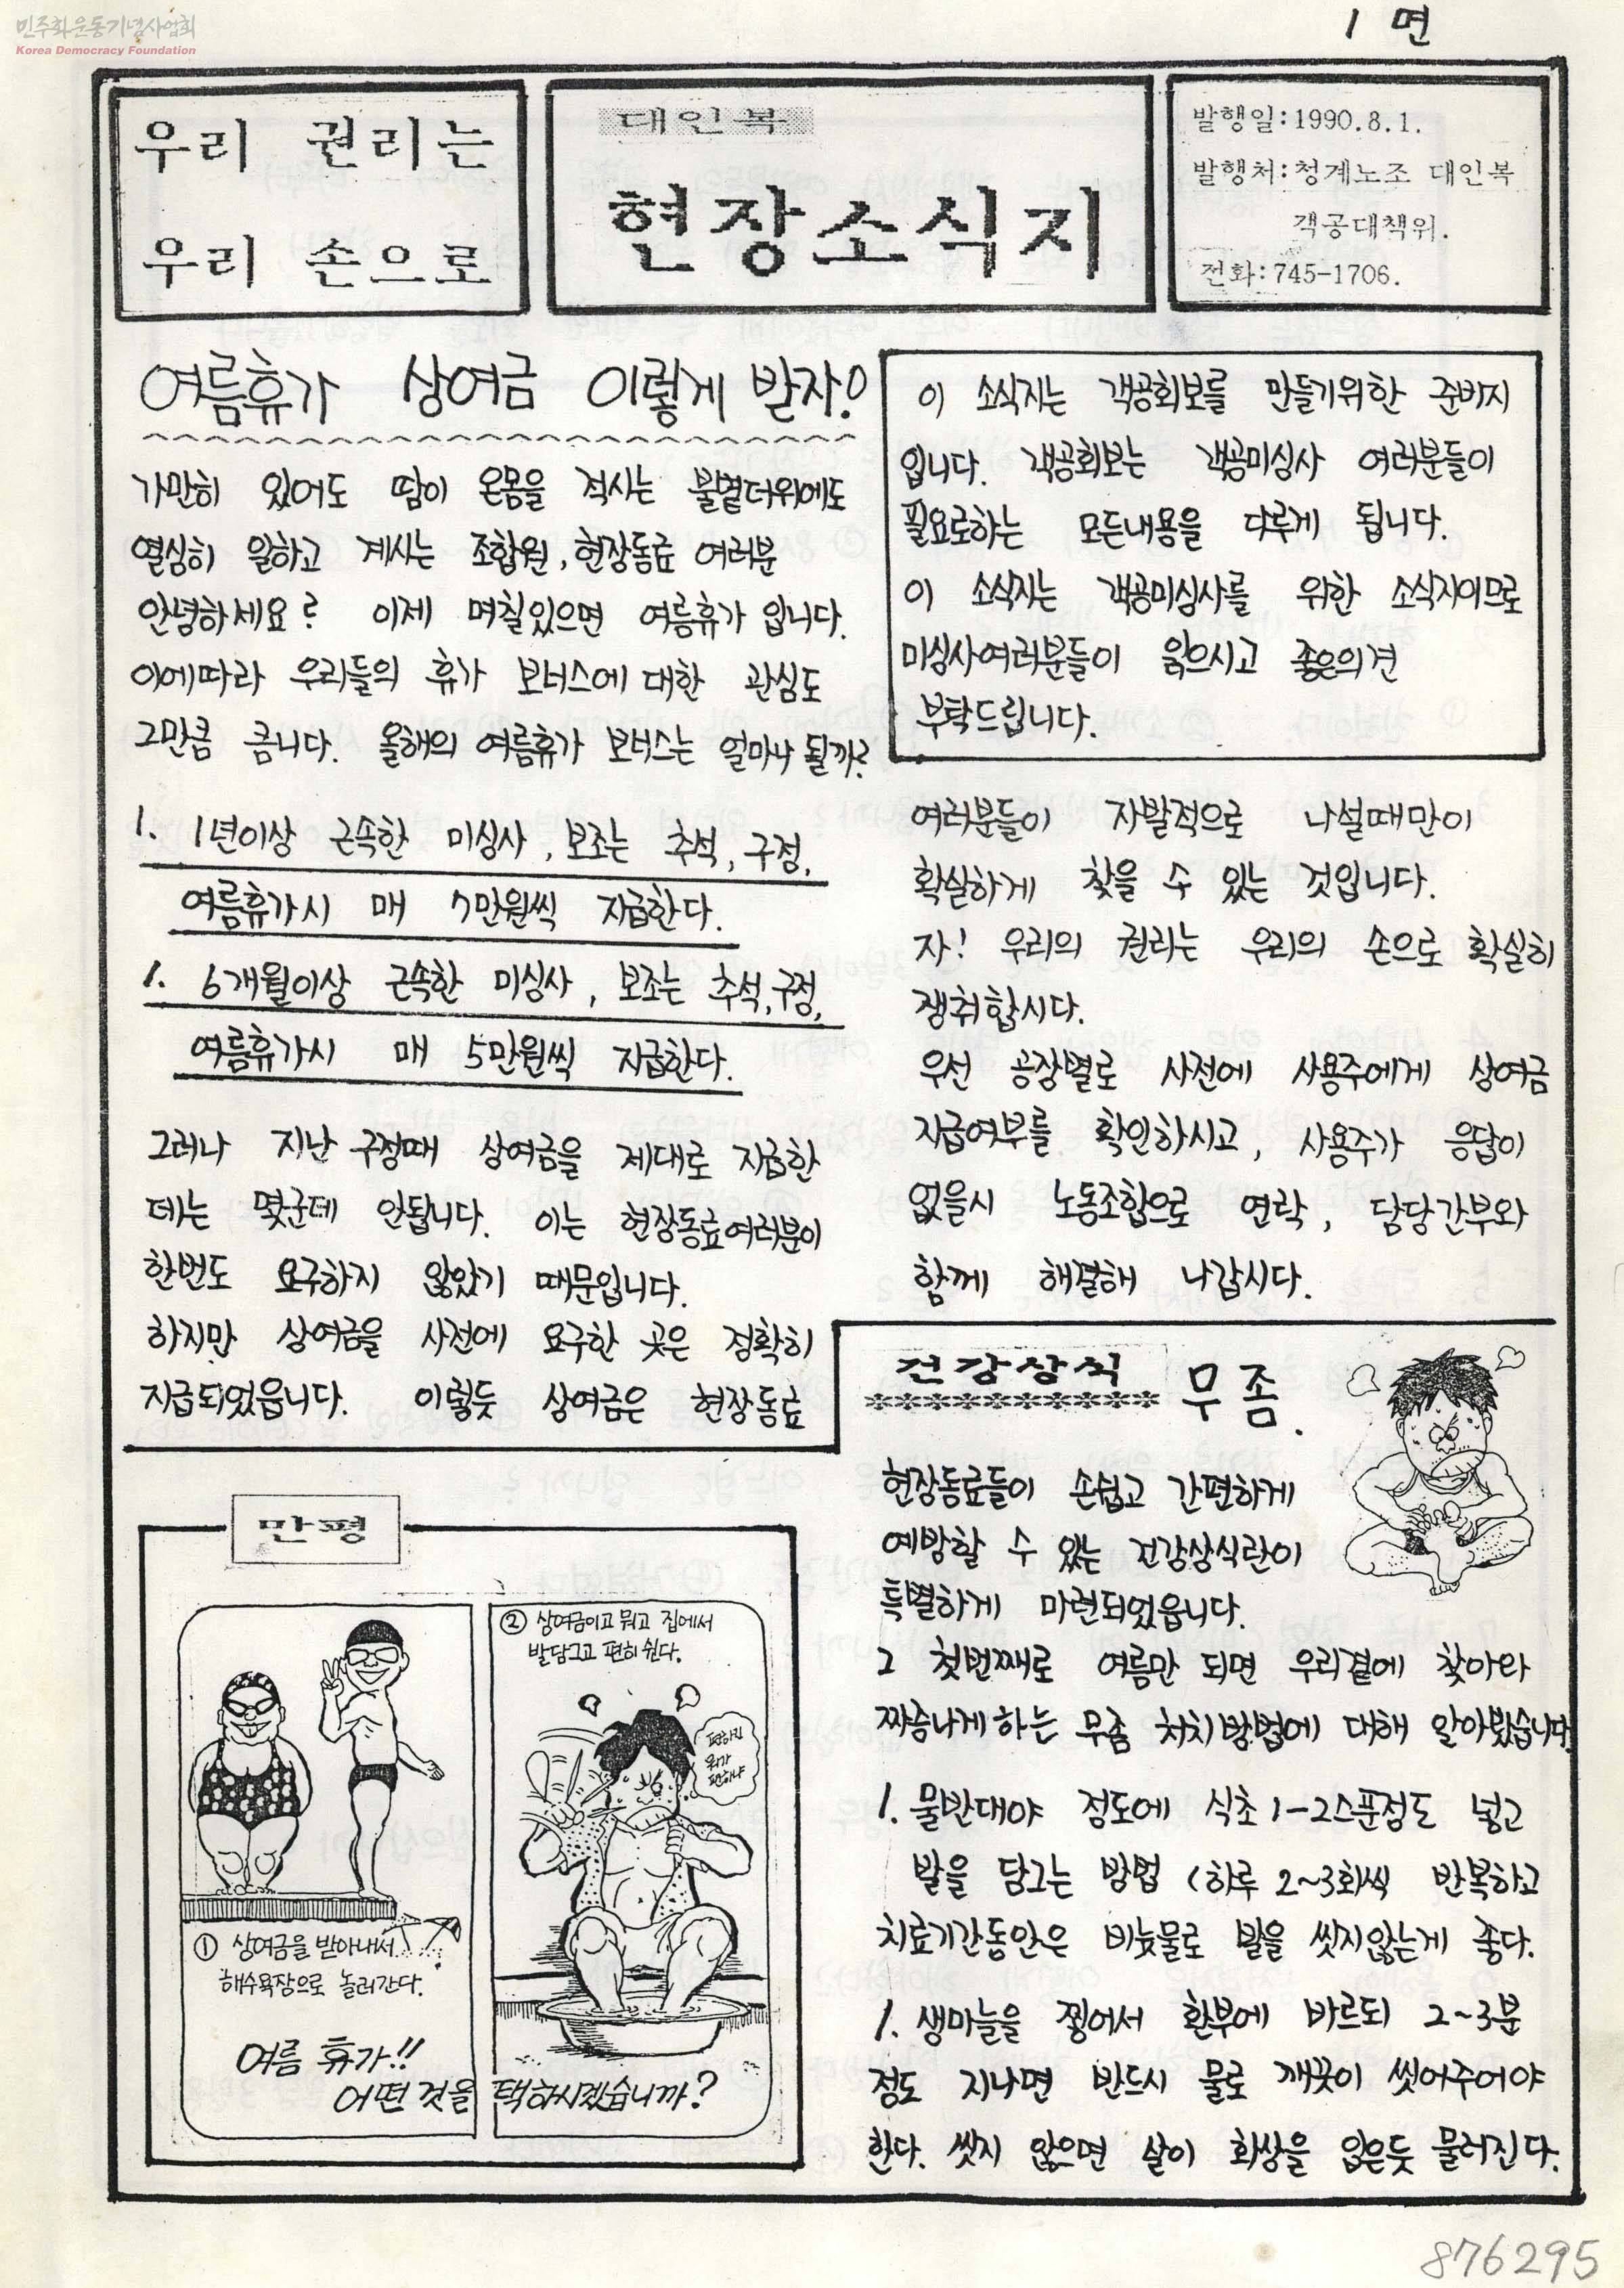 민주화운동기념사업회
Korea Democracy Foundation
1 면
우리 권리는
우리 손으로
대인복
현장소식지
발행일:1990.8.1.
발행처:청계노조 대인복
객공대책위.
전화:745-1706.
여름휴가 상여금 이렇게 받자!
가만히 있어도 땀이 온몸을 적시는 불볕더위에도
열심히 일하고 계시는 조합원, 현장동료 여러분
안녕하세요? 이제 며칠있으면 여름휴가 입니다.
이에따라 우리들의 휴가 보너스에 대한 관심도
그만큼 큽니다. 올해의 여름휴가 보너스는 얼마나 될까?
1. 1년이상 근속한 미싱사, 보조는 추석, 구정,
여름휴가시 매 7만원씩 지급한다.
1. 6개월이상 근속한 미싱사, 보조는 추석, 구정,
여름휴가시 매 5만원씩 지급한다.
그러나 지난 구정때 상여금을 제대로 지급한
데는 몇군데 안됩니다. 이는 현장동료여러분이
한번도 요구하지 않았기 때문입니다.
하지만 상여금을 사전에 요구한 곳은 정확히
지급되었읍니다. 이렇듯 상여금은 현장동료
이 소식지는 객공회보를 만들기위한 준비지
입니다. 객공회보는 객공미싱사 여러분들이
필요로하는 모든내용을 다루게 됩니다.
이 소식지는 객공미싱사를 위한 소식지이므로
미싱사여러분들이 읽으시고 좋은의견
부탁드립니다.
여러분들이 자발적으로 나설때만이
확실하게 찾을 수 있는 것입니다.
자! 우리의 권리는 우리의 손으로 확실히
쟁취합시다.
우선 공장별로 사전에 사용주에게 상여금
지급여부를 확인하시고, 사용주가 응답이
없을시 노동조합으로 연락, 담당간부와
함께 해결해 나갑시다.
건강상식 무좀.
**********
현장동료들이 손쉽고 간편하게
예방할 수 있는 건강상식란이
특별하게 마련되었읍니다.
그 첫번째로 여름만 되면 우리곁에 찾아와
짜증나게하는 무좀 처치방법에 대해 알아봤습니다.
1. 물반대야 정도에 식초 1-2스푼정도 넣고
발을 담그는 방법 (하루 2~3회씩 반복하고
치료기간동안은 비눗물로 발을 씻지않는게 좋다.
1. 생마늘을 찧어서 환부에 바르되 2~3분
정도 지나면 반드시 물로 깨끗이 씻어주어야
한다. 씻지 않으면 살이 화상을 입은듯 물러진다.
만평
① 상여금을 받아내서..
해수욕장으로 놀러간다.
② 상여금이고 뭐고 집에서
발담그고 편히 쉰다.
편하긴
뭐가
편하냐
여름 휴가!!
어떤 것을 택하시겠습니까?
876295